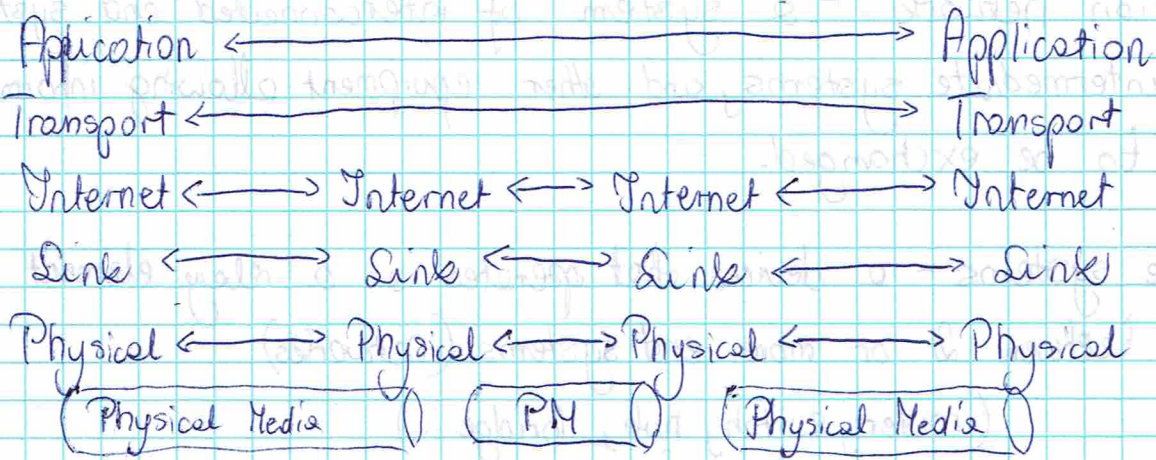 Application Application
Transport Transport
Internet Internet Internet Internet
Link Link Link Link
Physical Physical Physical Physical
Physical Media PM Physical Media